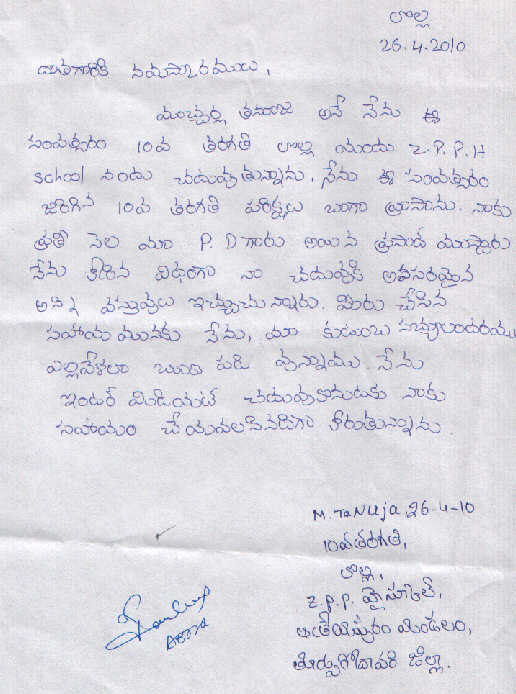 లొల్ల
26.4.2010
దాతగారికి నమస్కారములు,
ముచ్చర్ల తనూజ అనే నేను ఈ
సంవత్సరం 10వ తరగతి లొల్ల యందు Z.P.P.H
school నందు చదువుతున్నాను. నేను ఈ సంవత్సరం
జరిగిన 10వ తరగతి పరీక్షలు బాగా వ్రాసాను. నాకు
ప్రతి నెల మా P.D గారు అయిన ప్రసాద్ మాస్టారు
నేను కోరిన విధంగా నా చదువుకి అవసరమైన
అన్ని వస్తువులు ఇచ్చుచున్నారు. మీరు చేసిన
సహాయమునకు నేను, మా కుటుంబ సభ్యులందరము
ఎల్లవేళలా బుణపడి వున్నాము. నేను
ఇంటర్ మీడియట్ చదువుకొనుటకు నాకు
సహాయం చేయవలసినదిగా కోరుతున్నాను.
M. TaNuja 26-4-10
10వతరగతి,
లొల్ల,
Z.P.P. హైస్కూల్,
ఆత్రేయపురం మండలం,
తూర్పుగోదావరి జిల్లా.